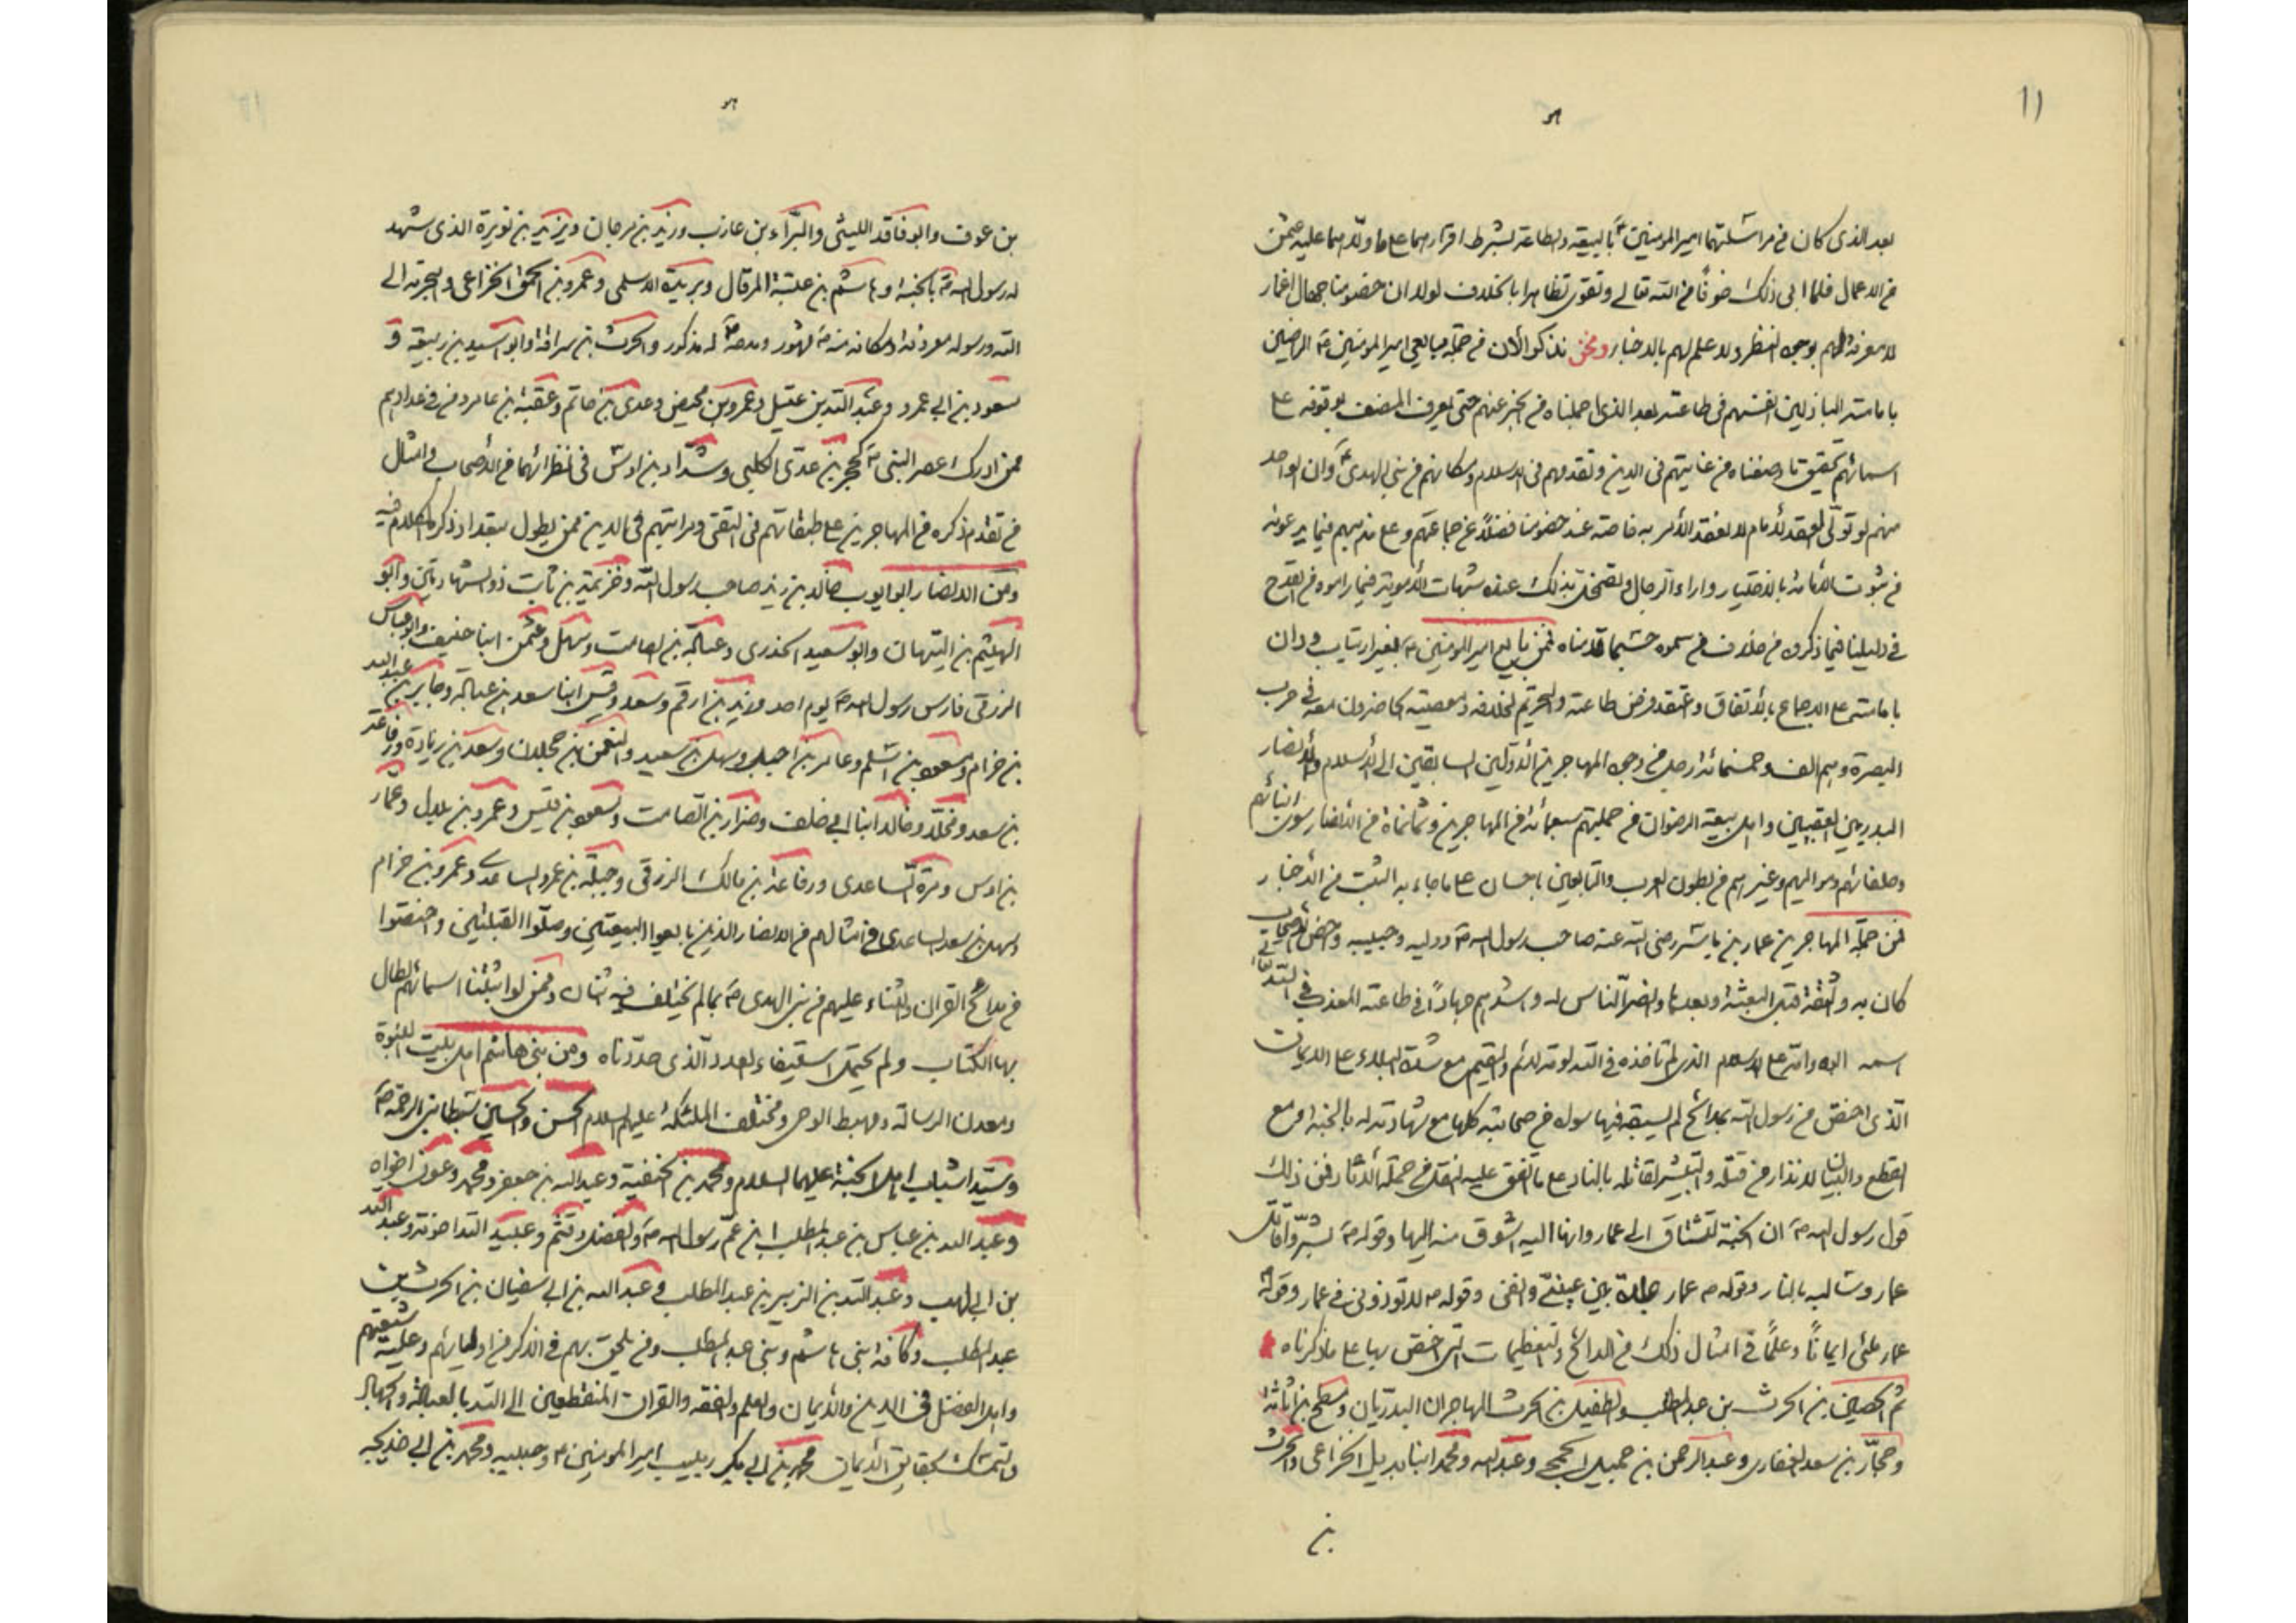 ١١
بعد الذى كان من مراسلتهما امير المومنين ع بالبيعة والطاعة بشرط اقرارهما على ما ولّاهما عليه عثمن
من الاعمال فلما ابى ذلك خوفًا من الله تعالى وتقوى تظاهرا بالخلاف لولا ان خصومنا جهال اغمار
لا معرفة لهم بوجوه النظر ولا علم لهم بالاخبار ونحن نذكر الأن من جملة مبايعى امير المومنين ع الراضين
بامامته الباذلين انفسهم فى طاعته بعد الذى اجملناه من الخبر عنهم حتى يعرف المنصف بوقوفه على
اسمائهم تحقيق ما وصفناه من عنايتهم فى الدين وتقدمهم فى الاسلام ومكانهم من نبى الهدى وان الواحد
منهم لو تولّى العقد لأمام لانعقد الأمر به خاصة عند خصومنا فضلًا عن جماعتهم وعلى مذهبهم فيما يدعونه
من ثبوت الأمامة بالاختيار واراء الرجال وتضمحل بذلك عنده شبهات الأموية فيما راموه من القدح
فى دليلنا فيما ذكروه من خلاف من سموه حسبما قدمناه فمن بايع امير المومنين ع بغير ارتياب ودان
بامامته على الاجماع بالأتفاق واعتقد فرض طاعته والتحريم لخلافه ومعصيته الحاضرون معه فى حرب
البصرة وهم الف وخمسمائة رجل من وجوه المهاجرين الأولين السابقين الى الأسلام والأنصار
البدريين العقبيين واهل بيعة الرضوان من جملتهم سبعمائة من المهاجرين وثمانمائة من الأنصار سوى ابنائهم
وحلفائهم ومواليهم وغيرهم من بطون العرب والتابعين باحسان على ما جاء به الثبت من الأخبار
فمن جملة المهاجرين عمار بن ياسر رضى الله عنه صاحب رسول الله ص ووليه وحبيبه واخص الأصحاب
كان به والثقة قبل البعثة وبعدها وانصر النّاس له واشدهم جهادًا فى طاعته المعذب فى الله
اسمه ابوه وامه على الاسلام الذى لم تاخذه فى الله لومة لائم والمقيم مع شدة البلاء على الايمان
الّذى اختص من رسول الله بمدائح لم يسبقه فيها سواه من صحابته كلها مع شهادته له بالجنة ومع
القطع والبيان للانذار من قتله والتبشير لقاتله بالنار على ما اتفق عليه نقلة جملة الأثار فمن ذلك
قول رسول الله ص ان الجنة لتشتاق الى عمار وانها اليه اشوق منه اليها وقوله ص بشّروا قاتل
عمار وسالبه بالنار وقوله ص عمار جلدة بين عينىّ وانفى وقوله ص لا تؤذونى فى عمار وقوله
عمار ملئ ايمانًا وعلمًا فى امثال ذلك من المدائح والتعظيمات التى اختص بها على ما ذكرناه
ثم الحصين بن الحرث بن عبد المطلب والطفيل بن الحرث المهاجران البدريّان ومسطح بن اثاثة
وجبّار بن سعد الغفارى وعبد الرحمن بن جميل الجمحى وعبد الله ومحمد ابنا بديل الخزاعى والحرث
بن
بن عوف وابو فاقد الليثى والبّراء بن عازب وزيد بن مرجان ويزيد بن نويرة الذى شهد
له رسول الله ص بالجنة وهاشم بن عتبة المرقال وبريدة الاسلمى وعمرو بن الحمق الخزاعى وهجرته الى
الله ورسوله معروفة ومكانه منه ص مشهور ومدحه له مذكور والحرث بن سراقة وابو اسيد بن ربيعة و
مسعود بن ابى عمرو وعبد الله بن عقيل وعمرو بن محيض وعدى بن حاتم وعقبة بن عامر ومن فى عدادهم
ممن ادرك عصر النبى ص كحجر بن عدى الكلبى وشدّاد بن اوس فى نظرائهما من الأصحاب وامثال
من تقدم ذكره من المهاجرين على طبقاتهم فى التقى ومراتبهم فى الدين ممن يطول بتعداد ذكره الكلام فيه
ومن الانصار ابو ايوب خالد بن زيد صاحب رسول الله وخزيمة بن ثابت ذو الشهادتين وابو
الهيثم بن التيهان وابو سعيد الخدرى وعبادة بن الصامت وسهل وعثمن ابنا حنيف وابو عياش
الزرقى فارس رسول الله ص يوم احد وزيد بن ارقم وسعد وقيس ابنا سعد بن عبادة وجابر بن عبد الله
بن حزام ومسعود بن اسلم وعامر بن اجبل وسهل بن سعيد والنعمن بن عجلان وسعد بن زيادة ورفاعة
بن سعد ومخلد وخالد ابنا ابى خلف وضرار بن الصامت ومسعود بن قيس وعمرو بن بلال وعمار
بن اوس ومرة الساعدى ورفاعة بن مالك الزرقى وجبلة بن عمرو الساعدى وعمرو بن حزام
وسهل بن سعد الساعدى فى امثالهم من الانصار الذين بايعوا البيعتين وصلّوا القبلتين واختصوا
من مدائح القرآن والثناء عليهم من نبى الهدى ص بما لم يختلف فيه اثنان وممن لو اثبتنا اسمائهم لطال
بها الكتاب ولم يحتمل استيفاء العدد الّذى حدّدناه ومن بنى هاشم اهل بيت النبوة
ومعدن الرسالة ومهبط الوحى ومختلف الملئكة عليهم السلام الحسن والحسين سبطا نبى الرحمة ص
وسيّدا شباب اهل الجنة عليهما السلام ومحمد بن الحنفية وعبد الله بن جعفر ومحمد وعون اخواه
وعبد الله بن عباس بن عبد المطلب ابن عم رسول الله ص والفضل وقثم وعبيد الله اخوته وعبد الله
بن ابى لهب وعبد الله بن الزبير بن عبد المطلب وعبد الله بن ابى سفيان بن الحرث بن
عبد المطلب وكافة بنى هاشم وبنى عبد المطلب ومن يلحق بهم فى الذكر من اوليائهم وعلية شيعتهم
واهل الفضل فى الدين والأيمان والعلم والفقه والقران المنقطعين الى الله بالعبادة والجهاد
والتمسك بحقايق الأيمان محمد بن ابى بكر ربيب امير المومنين ع وحبيبه ومحمد بن ابى خديجه